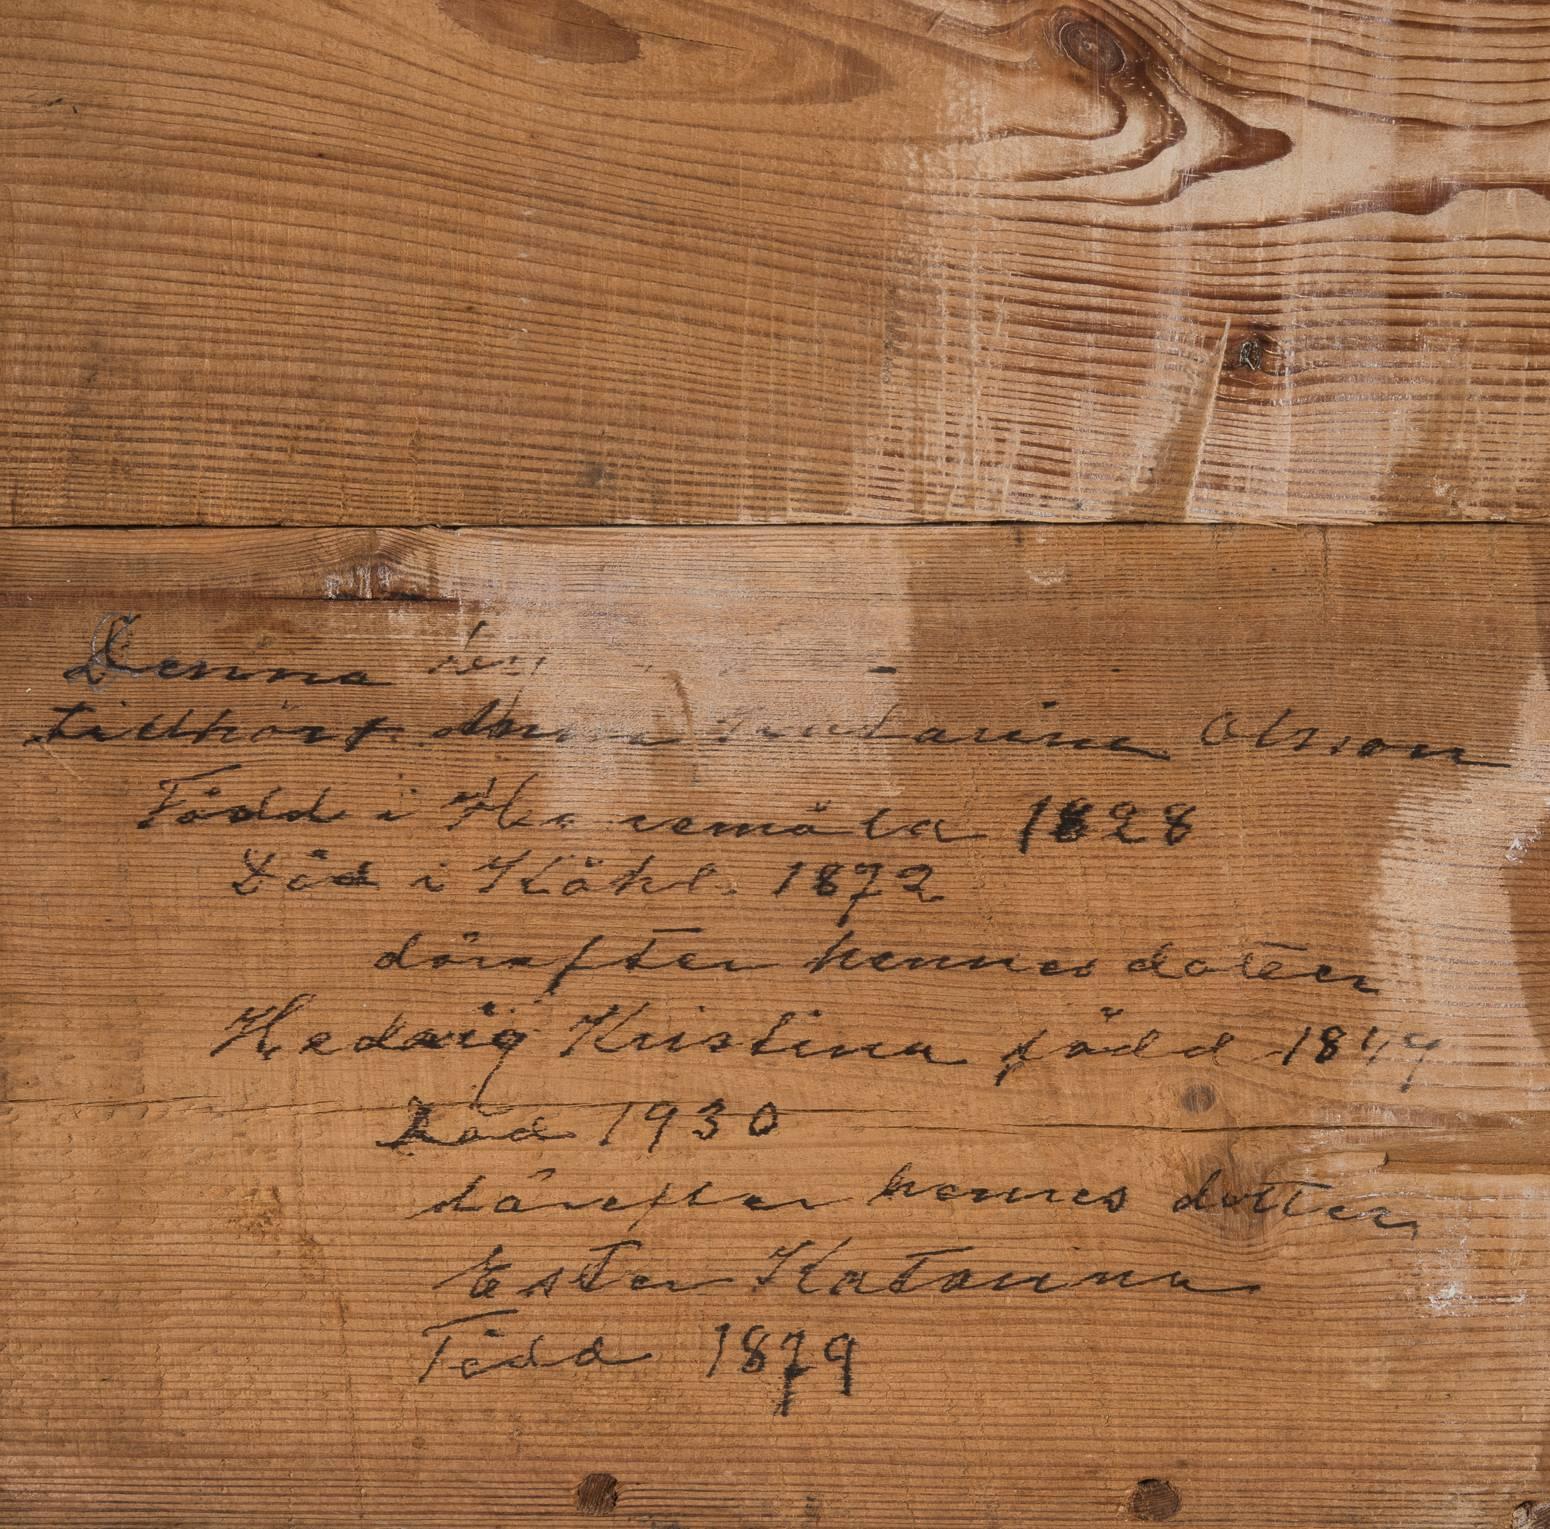 Denna
tillhört Anna Katarina Olsson
Född i 1828
Död i Kåhl. 1872
därefter hennes doter
Hedvig Kristina född 18
Död 1930
därefter hennes dotter
Ester Katarina
Född 1879